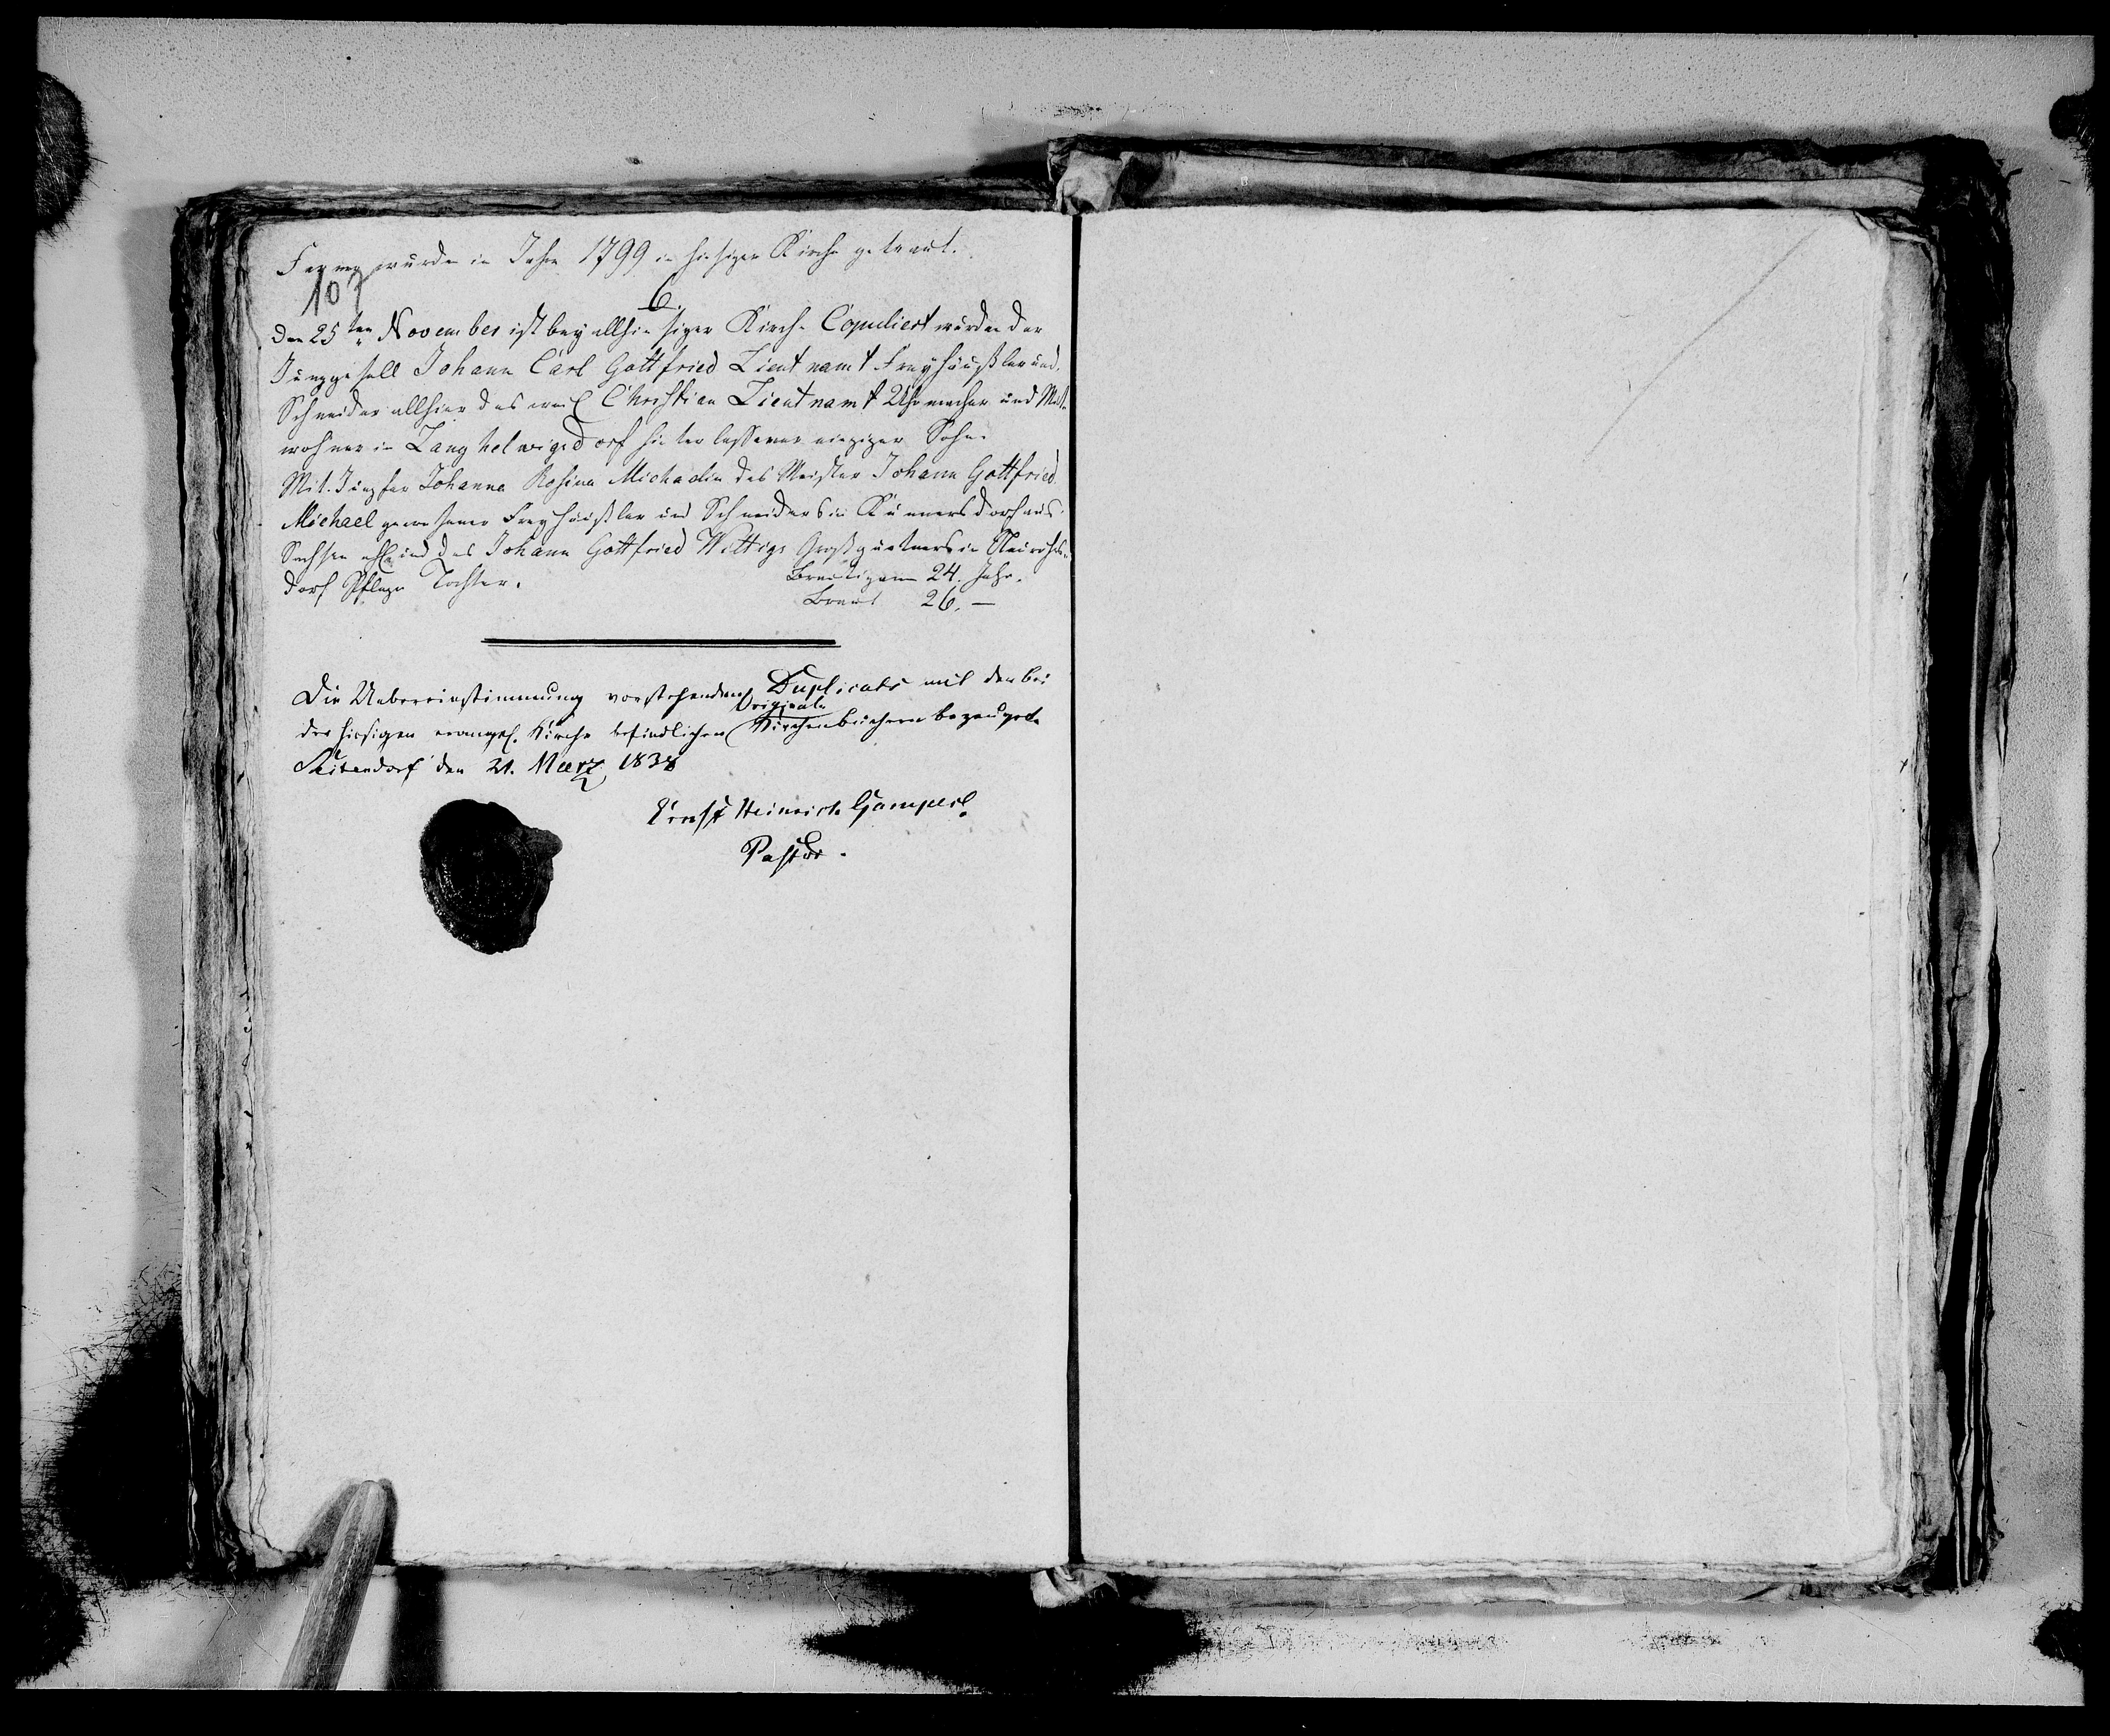 Ferner wurden im Jahre 1799 in hiesiger Kirche getraut.
107
6.
Den 25ten November ist bey allhiesiger Kirche Copuliert worden der
Junggesell Johann Carl Gottfried Lieutnamt Freyhäußler und
Schneider allhier des weil Christian Lieutnamt Uhrmacher und Mit-
wohner in Langhelwigsdorf hinterlassener einziger Sohn.
Mit Jungfer Johanna Rosina Michaelin des Meister Johann Gottfried
Michael gewesener Freyhäußler und Schneiders in Kunnersdorf aus
Sachsen und des Johann Gottfried Wittigs Großgärtners in
dorf Pflege Tochter.
Bräutigam 24. Jahr.
Braut 26. —
Die Uebereinstimmung vorstehenden Duplicats mit den bei
der hiesigen evangel. Kirche befindlichen Original
Kirchenbüchern bezeuget.
den 21. Maerz 1838
Ernst Heinrich Gamper
Pastor.